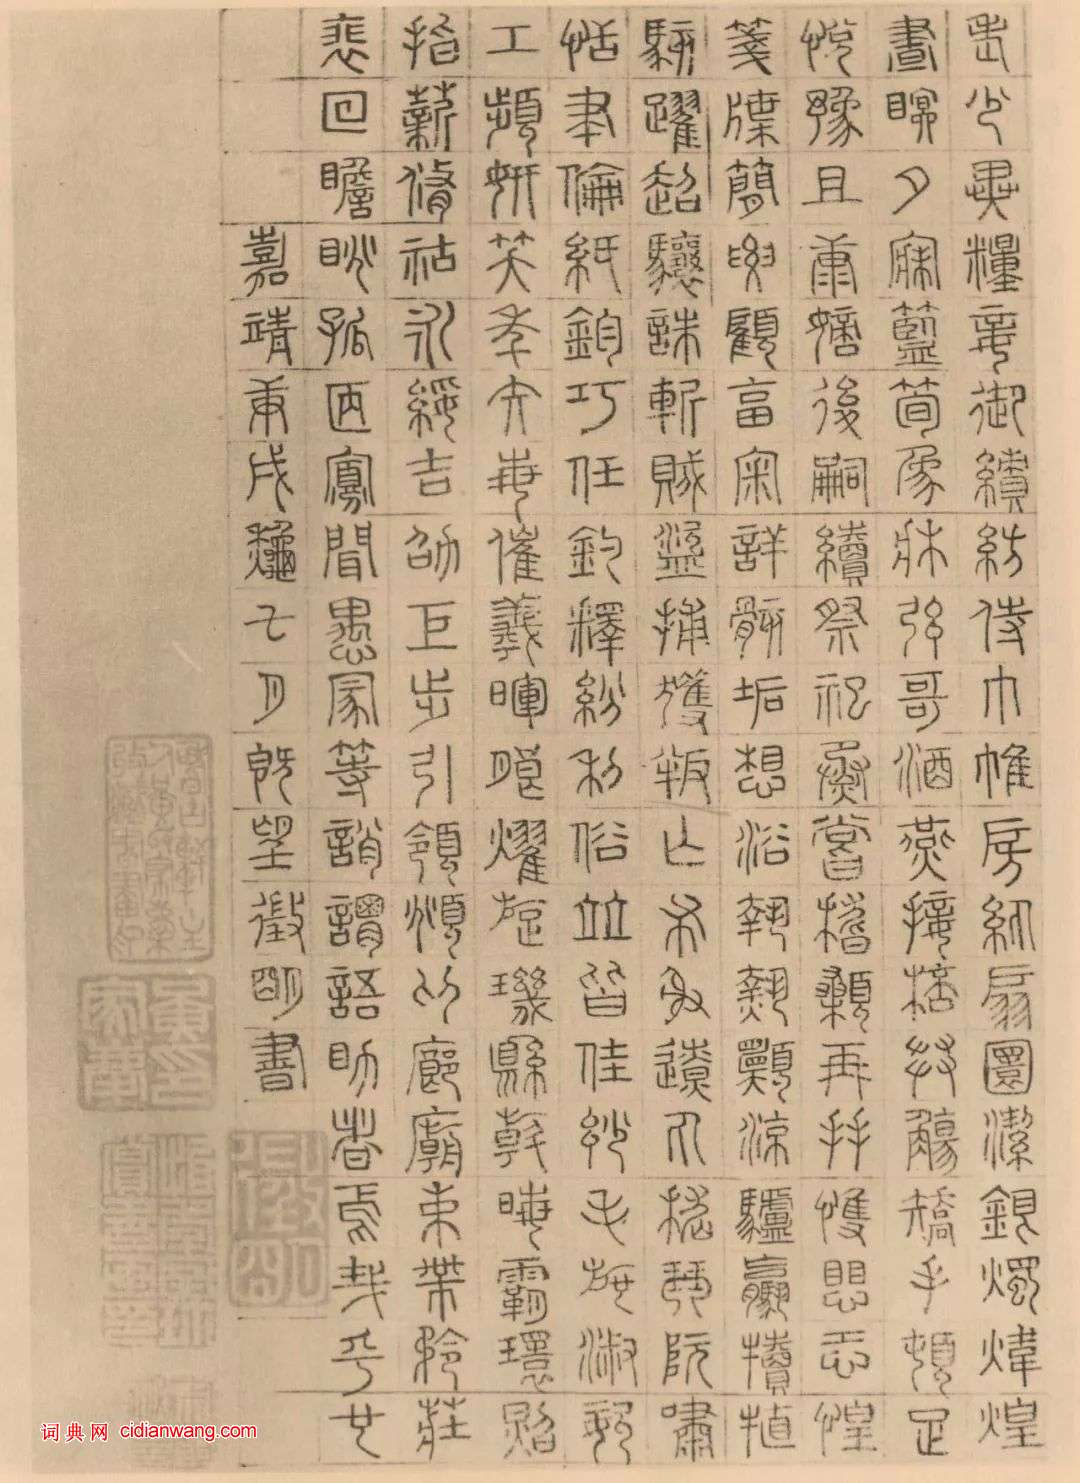 老少異糧妾御績紡侍巾帷房紈扇圜潔銀燭煒煌
晝瞑夕寐籃筍象牀弦哥酒燕接桮舉觴矯手頓足
悅豫且康嫡後嗣續祭祀烝嘗稽顙再拜悚懼恐惶
箋牒簡要顧畣審詳骸垢想浴執熱願涼驢騾犢特
駭躍超驤誅斬賊盜捕獲叛亡布射遼丸嵇琴阮嘯
恬筆倫紙鈞巧任釣釋紛利俗並皆佳妙毛施淑姿
工頻妍笑年矢每催羲暉朗耀旋璣縣斡晦霸環照
指薪脩祜永綏吉劭矩步引領俯仰廊廟束帶矜莊
裵回瞻眺孤陋寡聞愚蒙等誚謂語助者焉哉乎也
嘉靖庚戌龝七月既望徵明書
词典网 cidianwang.com